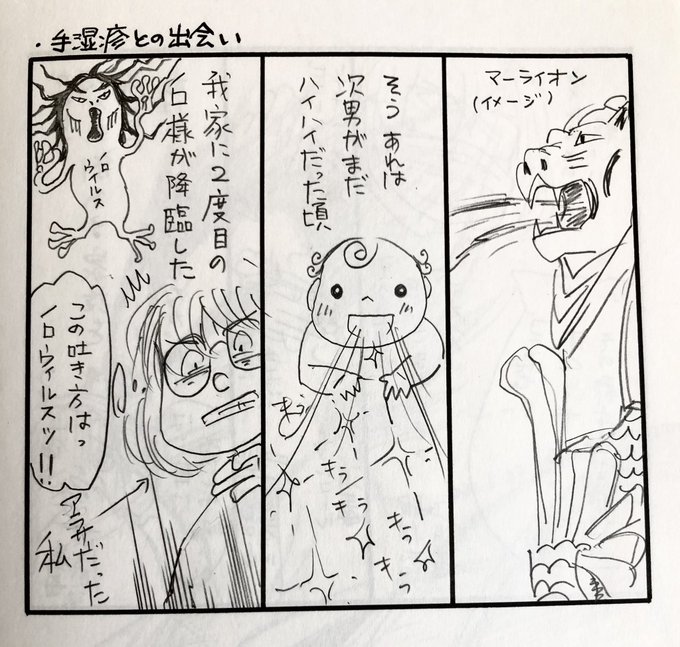 ・手湿疹との出会い
マーライオン
(イメージ)
そう あれは
次男がまだ
ハイハイだった頃
キラ
キラ
キラ
キラ
我家に2度目の
ロ様が降臨した
ノロ
ウィルス
この吐き方はっ
ノロウィルスッ!!
アラサーだった
私